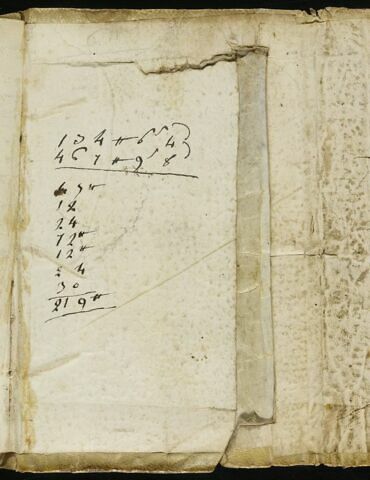 134 ₶ 6 s 4 d
467 ₶ 9 s 8 d
45 ₶
12
24
72 ₶
12 ₶
24
30
219 ₶